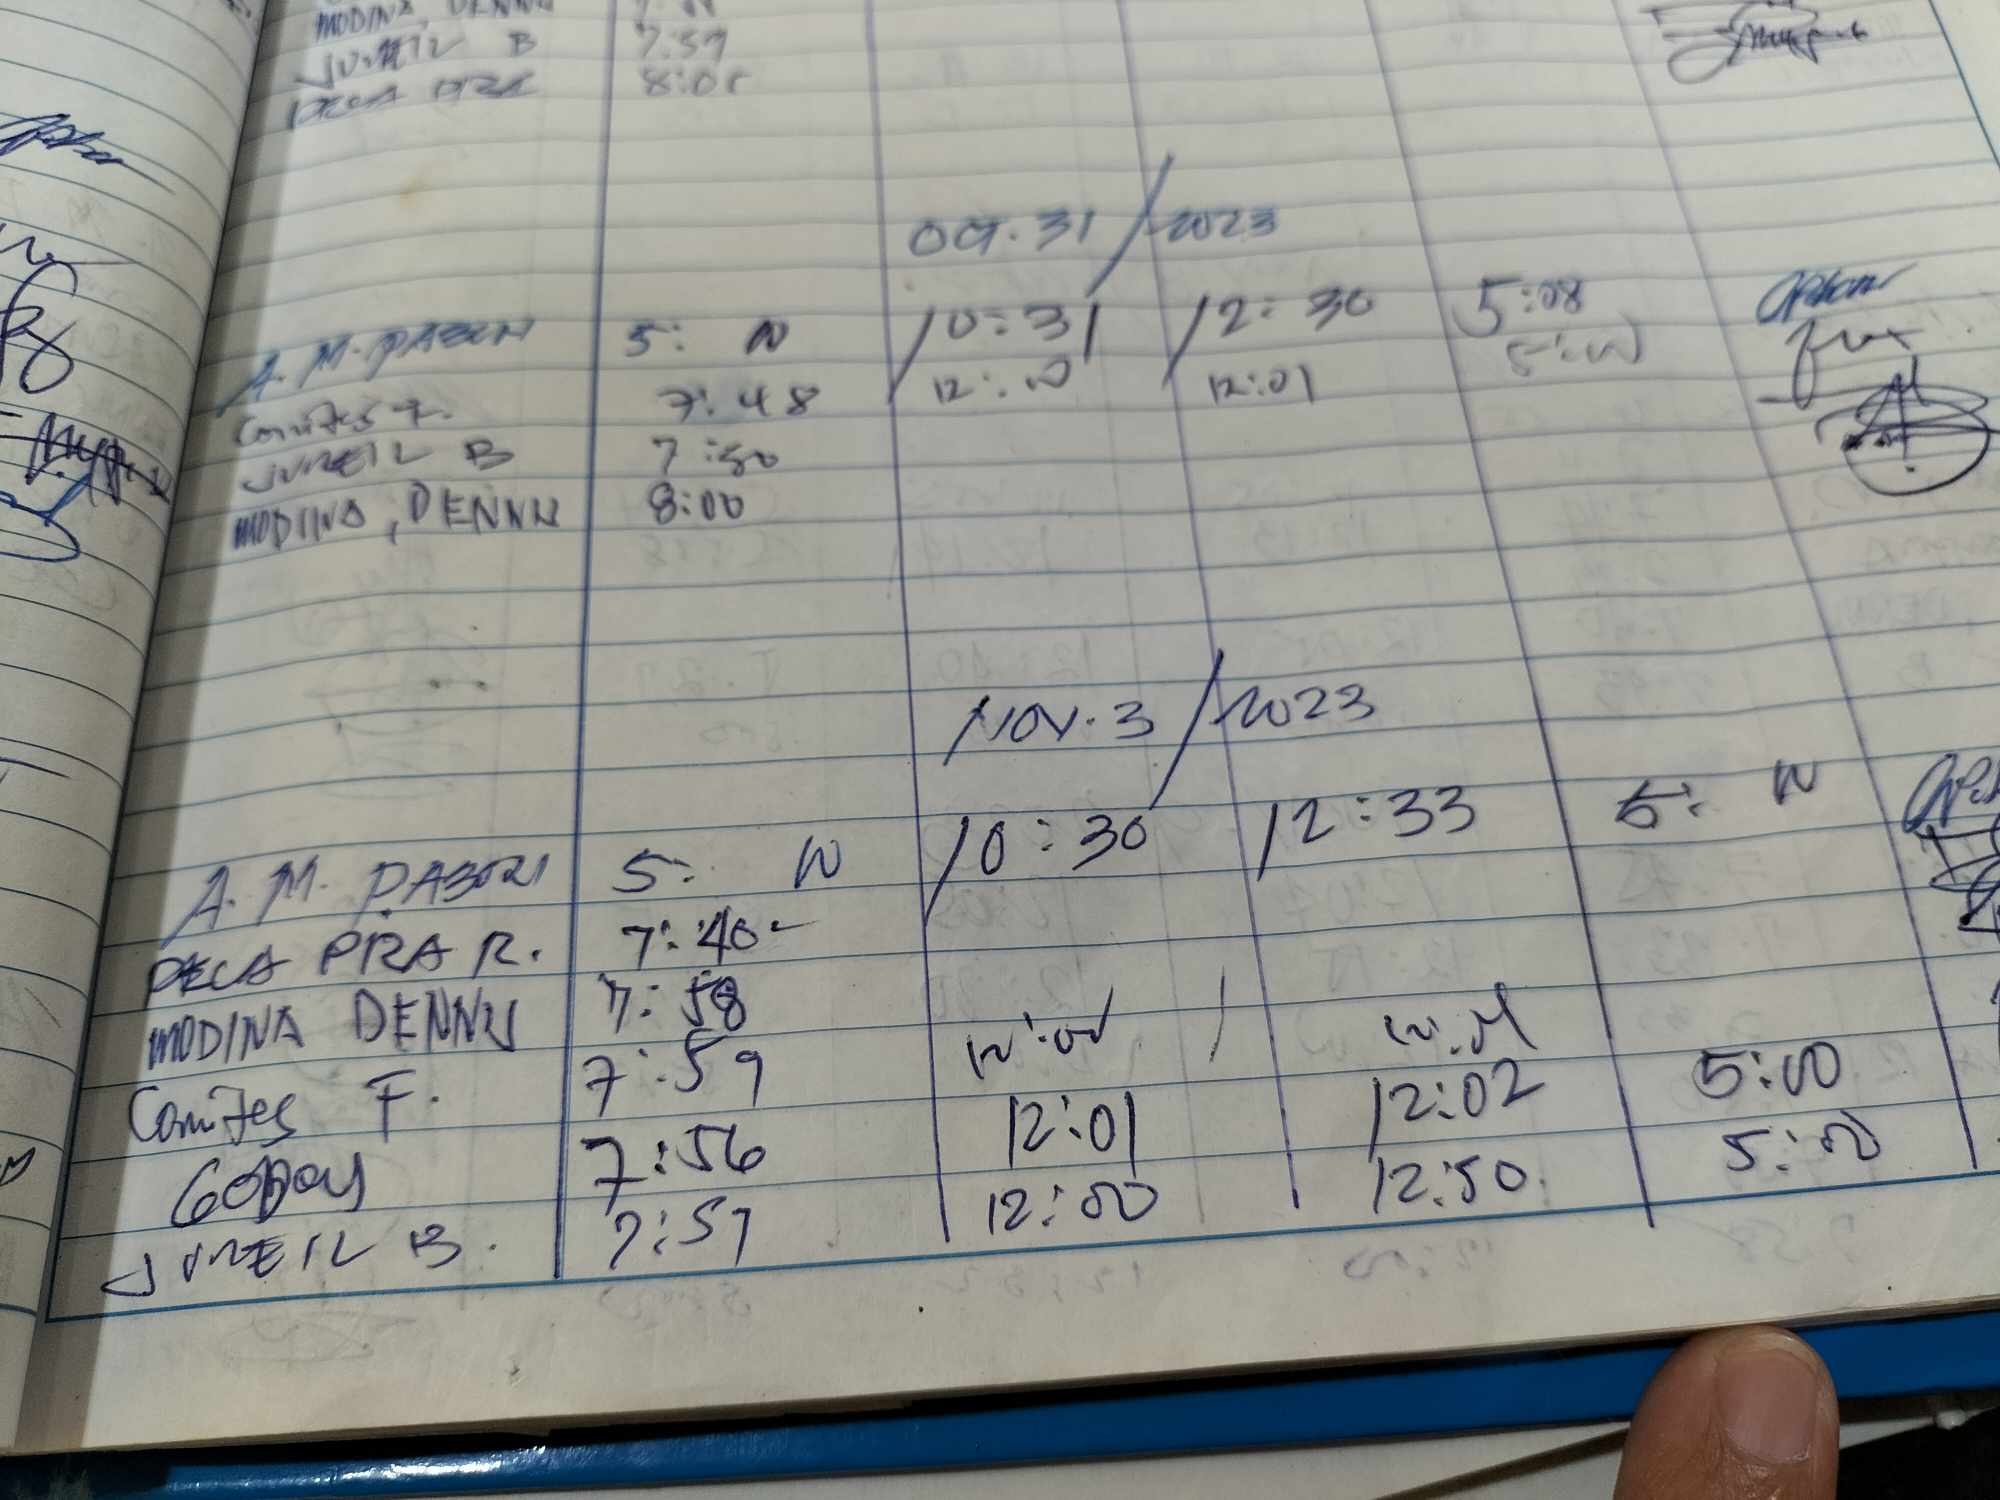 MODINA, DENNU
JUNEIL B 7:59
DECA PRA 8:01
OCT. 31 / 2023
A. M. PABON 5: 00 10:31 12:30 5:08
Comites F. 7:48 12:00 12:01 5:00
JUNEIL B 7:50
MODINA, DENNU 8:00
NOV. 3 / 2023
A. M. PABON 5: 00 10:30 12:33 5: 00
DECA PRA R. 7:40
MODINA DENNU 7:58
Comites F. 7:59 12:00 12:01
GODOY 7:56 12:01 12:02 5:00
JUNEIL B. 7:57 12:00 12:50 5:00